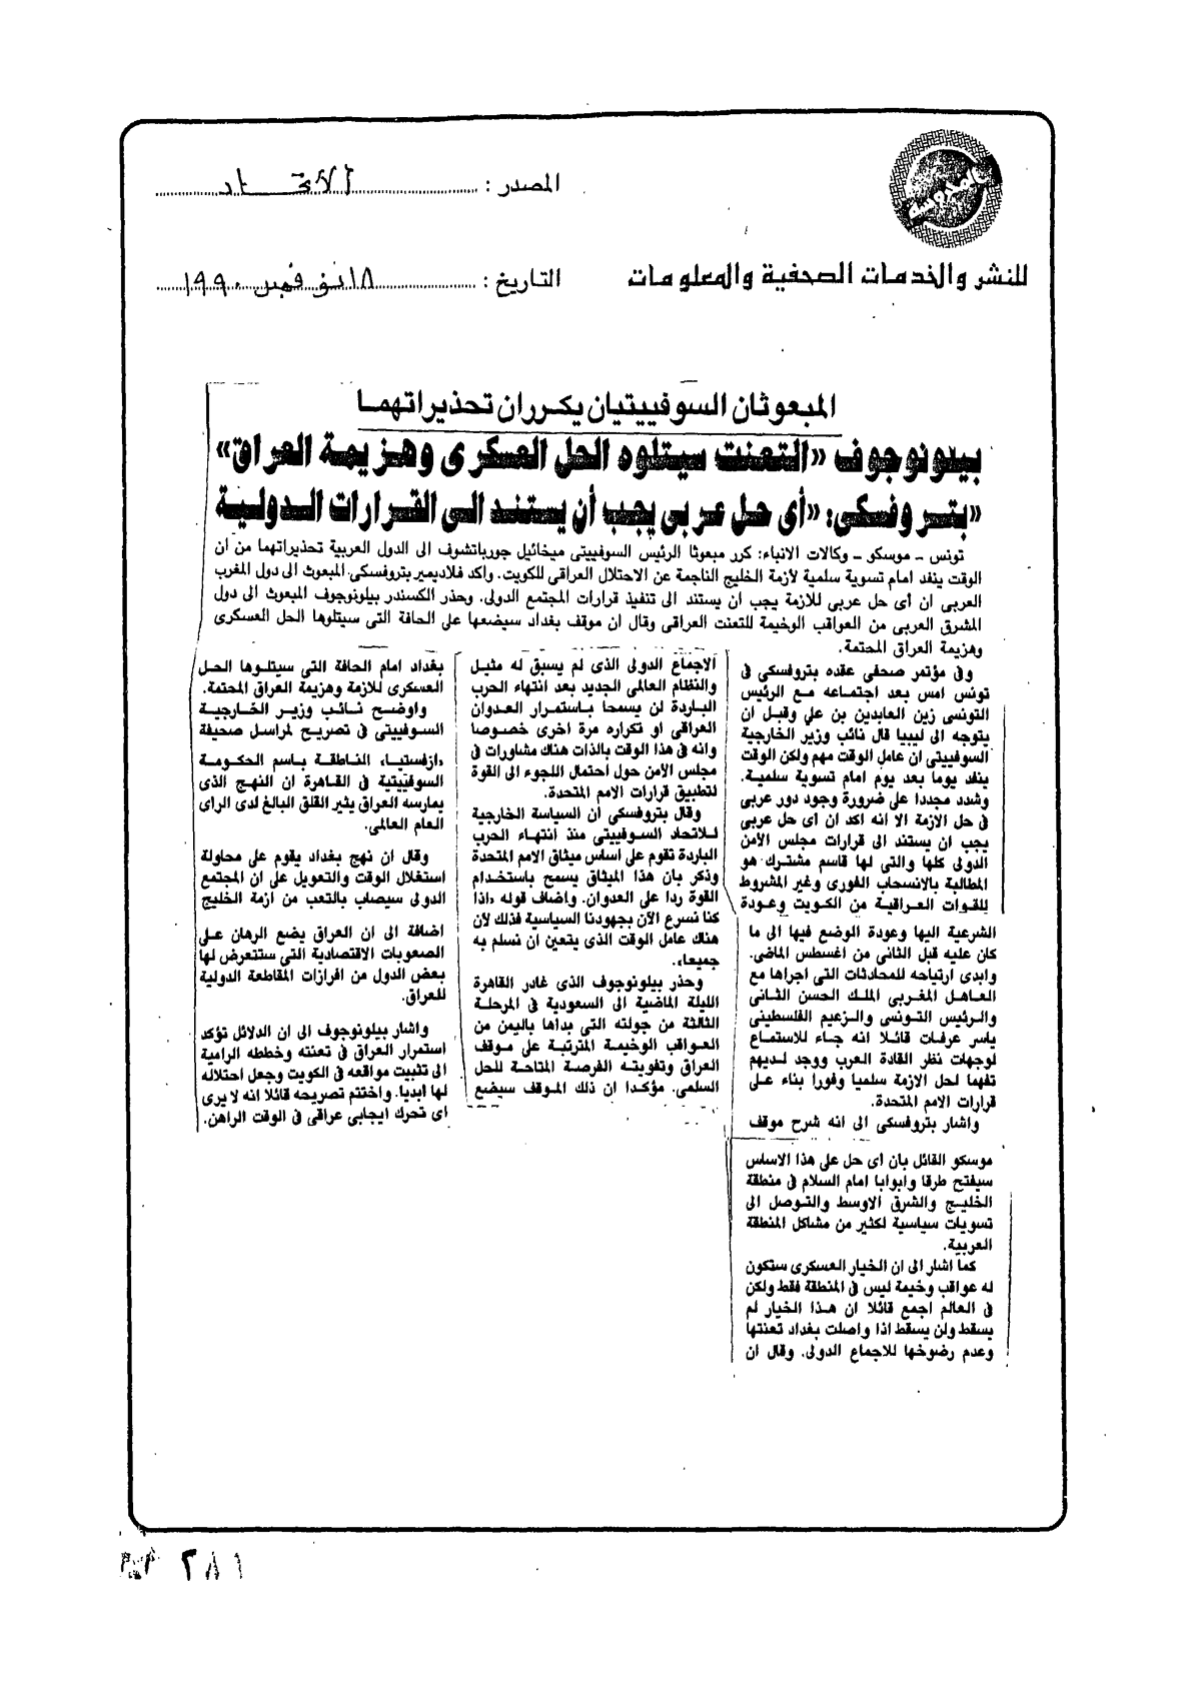 المصدر : الاتحاد
للنشر والخدمات الصحفية والمعلومات
التاريخ : ١٨ نوفمبر ١٩٩٠
المبعوثان السوفييتيان يكرران تحذيراتهما
بيلونوجوف «التعنت سيتلوه الحل العسكرى وهزيمة العراق»
«بتروفسكى: «أى حل عربى يجب أن يستند الى القرارات الدولية
تونس ـ موسكو ـ وكالات الانباء: كرر مبعوثا الرئيس السوفييتى ميخائيل جورباتشوف الى الدول العربية تحذيراتهما من أن
الوقت ينفد امام تسوية سلمية لأزمة الخليج الناجمة عن الاحتلال العراقى للكويت. واكد فلاديمير بتروفسكى المبعوث الى دول المغرب
العربى ان أى حل عربى للازمة يجب ان يستند الى تنفيذ قرارات المجتمع الدولى. وحذر الكسندر بيلونوجوف المبعوث الى دول
المشرق العربى من العواقب الوخيمة للتعنت العراقى وقال ان موقف بغداد سيضعها على الحافة التى سيتلوها الحل العسكرى
وهزيمة العراق المحتمة.
وفى مؤتمر صحفى عقده بتروفسكى فى
تونس امس بعد اجتماعه مع الرئيس
التونسى زين العابدين بن على وقبل ان
يتوجه الى ليبيا قال نائب وزير الخارجية
السوفييتى ان عامل الوقت مهم ولكن الوقت
ينفد يوما بعد يوم امام تسوية سلمية.
وشدد مجددا على ضرورة وجود دور عربى
فى حل الازمة الا انه اكد ان اى حل عربى
يجب ان يستند الى قرارات مجلس الأمن
الدولى كلها والتى لها قاسم مشترك هو
المطالبة بالانسحاب الفورى وغير المشروط
للقوات العراقية من الكويت وعودة
الشرعية اليها وعودة الوضع فيها الى ما
كان عليه قبل الثانى من اغسطس الماضى.
وابدى ارتياحه للمحادثات التى اجراها مع
العاهل المغربى الملك الحسن الثانى
والرئيس التونسى والزعيم الفلسطينى
ياسر عرفات قائلا انه جاء للاستماع
لوجهات نظر القادة العرب ووجد لديهم
تفهما لحل الازمة سلميا وفورا بناء على
قرارات الامم المتحدة.
واشار بتروفسكى الى انه شرح موقف
موسكو القائل بان اى حل على هذا الاساس
سيفتح طرقا وابوابا امام السلام فى منطقة
الخليج والشرق الاوسط والتوصل الى
تسويات سياسية لكثير من مشاكل المنطقة
العربية.
كما اشار الى ان الخيار العسكرى ستكون
له عواقب وخيمة ليس فى المنطقة فقط ولكن
فى العالم اجمع قائلا ان هذا الخيار لم
يسقط ولن يسقط اذا واصلت بغداد تعنتها
وعدم رضوخها للاجماع الدولى. وقال ان
الاجماع الدولى الذى لم يسبق له مثيل
والنظام العالمى الجديد بعد انتهاء الحرب
الباردة لن يسمحا باستمرار العدوان
العراقى او تكراره مرة اخرى خصوصا
وانه فى هذا الوقت بالذات هناك مشاورات فى
مجلس الأمن حول احتمال اللجوء الى القوة
لتطبيق قرارات الامم المتحدة.
وقال بتروفسكى ان السياسة الخارجية
للاتحاد السوفييتى منذ انتهاء الحرب
الباردة تقوم على اساس ميثاق الامم المتحدة
وذكر بان هذا الميثاق يسمح باستخدام
القوة ردا على العدوان. واضاف قوله «اذا
كنا نسرع الآن بجهودنا السياسية فذلك لأن
هناك عامل الوقت الذى يتعين ان نسلم به
جميعا».
وحذر بيلونوجوف الذى غادر القاهرة
الليلة الماضية الى السعودية فى المرحلة
الثالثة من جولته التى بدأها باليمن من
العواقب الوخيمة المترتبة على موقف
العراق وتفويته الفرصة المتاحة للحل
السلمى. مؤكدا ان ذلك الموقف سيضع
بغداد امام الحافة التى سيتلوها الحل
العسكرى للازمة وهزيمة العراق المحتمة.
واوضح نائب وزير الخارجية
السوفييتى فى تصريح لمراسل صحيفة
«ازفستيا» الناطقة باسم الحكومة
السوفييتية فى القاهرة ان النهج الذى
يمارسه العراق يثير القلق البالغ لدى الراى
العام العالمى.
وقال ان نهج بغداد يقوم على محاولة
استغلال الوقت والتعويل على ان المجتمع
الدولى سيصاب بالتعب من ازمة الخليج
اضافة الى ان العراق يضع الرهان على
الصعوبات الاقتصادية التى ستتعرض لها
بعض الدول من افرازات المقاطعة الدولية
للعراق.
واشار بيلونوجوف الى ان الدلائل تؤكد
استمرار العراق فى تعنته وخططه الرامية
الى تثبيت مواقعه فى الكويت وجعل احتلاله
لها ابديا. واختتم تصريحه قائلا انه لا يرى
اى تحرك ايجابى عراقى فى الوقت الراهن.
٢٨١